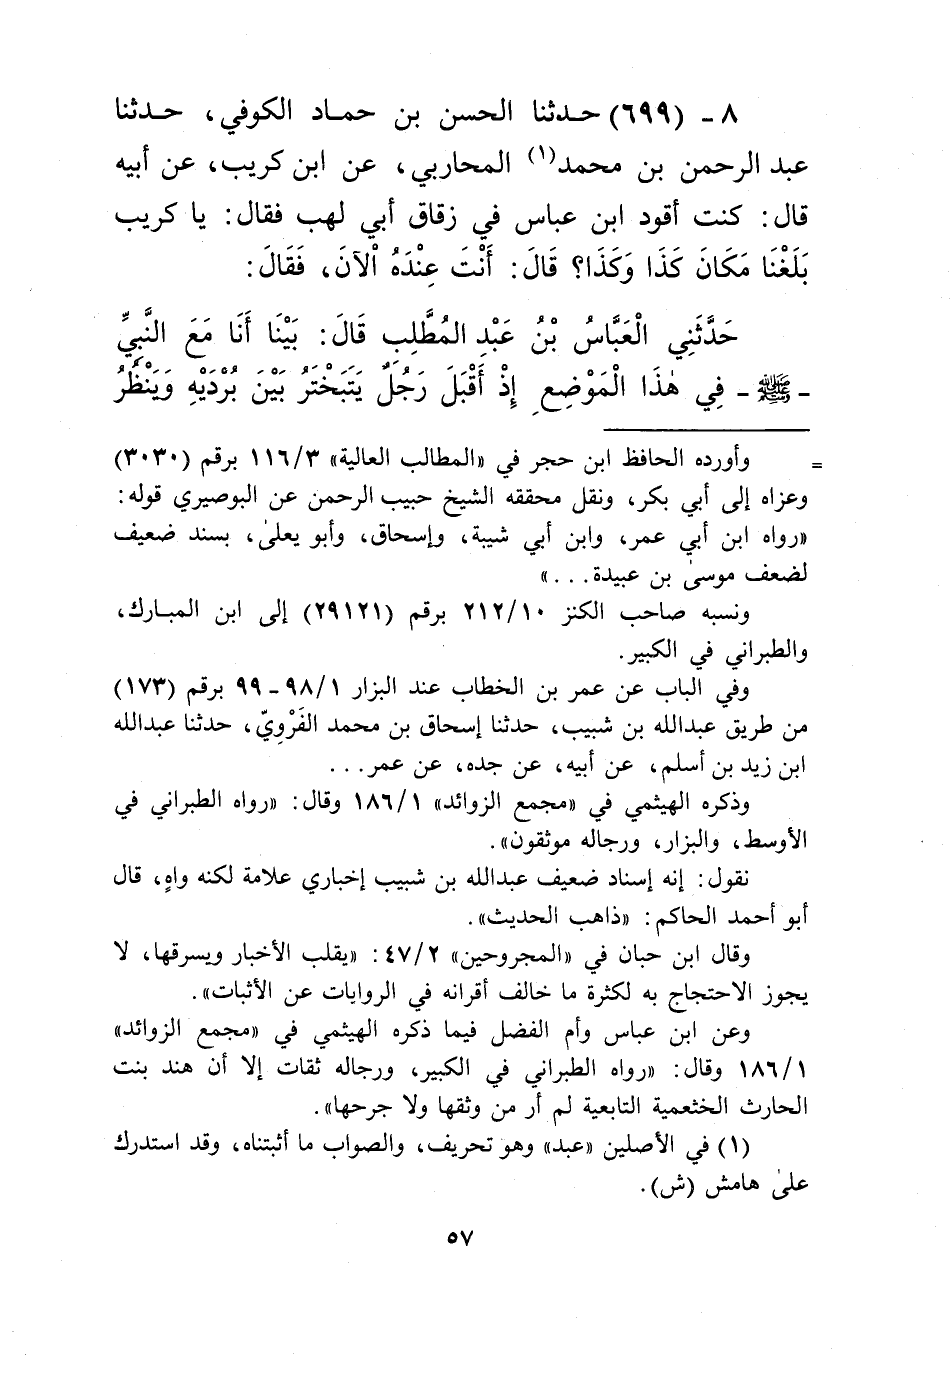 ٨ - (٦٩٩) حدثنا الحسن بن حماد الكوفي، حدثنا
عبد الرحمن بن محمد(١) المحاربي، عن ابن كريب، عن أبيه
قال: كنت أقود ابن عباس في زقاق أبي لهب فقال: يا كريب
بَلَغْنَا مَكَانَ كَذَا وَكَذَا؟ قَالَ: أَنْتَ عِنْدَهُ الْآنَ، فَقَالَ:
حَدَّثَنِي الْعَبَّاسُ بْنُ عَبْدِ المُطَّلِبِ قَالَ: بَيْنَا أَنَا مَعَ النَّبِيِّ
- ﷺ - فِي هٰذَا الْمَوْضِعِ إِذْ أَقْبَلَ رَجُلٌ يَتَبَخْتَرُ بَيْنَ بُرْدَيْهِ وَيَنْظُرُ
= وأورده الحافظ ابن حجر في «المطالب العالية» ١١٦/٣ برقم (٣٠٣٠)
وعزاه إلى أبي بكر، ونقل محققه الشيخ حبيب الرحمن عن البوصيري قوله:
«رواه ابن أبي عمر، وابن أبي شيبة، وإسحاق، وأبو يعلىٰ، بسند ضعيف
لضعف موسىٰ بن عبيدة...»
ونسبه صاحب الكنز ٢١٢/١٠ برقم (٢٩١٢١) إلى ابن المبارك،
والطبراني في الكبير.
وفي الباب عن عمر بن الخطاب عند البزار ٩٨/١ - ٩٩ برقم (١٧٣)
من طريق عبدالله بن شبيب، حدثنا إسحاق بن محمد الفَرْوِيّ، حدثنا عبدالله
ابن زيد بن أسلم، عن أبيه، عن جده، عن عمر...
وذكره الهيثمي في «مجمع الزوائد» ١٨٦/١ وقال: «رواه الطبراني في
الأوسط، والبزار، ورجاله موثقون».
نقول: إنه إسناد ضعيف عبدالله بن شبيب إخباري علامة لكنه واهٍ، قال
أبو أحمد الحاكم: «ذاهب الحديث».
وقال ابن حبان في «المجروحين» ٤٧/٢: «يقلب الأخبار ويسرقها، لا
يجوز الاحتجاج به لكثرة ما خالف أقرانه في الروايات عن الأثبات».
وعن ابن عباس وأم الفضل فيما ذكره الهيثمي في «مجمع الزوائد»
١٨٦/١ وقال: «رواه الطبراني في الكبير، ورجاله ثقات إلا أن هند بنت
الحارث الخثعمية التابعية لم أر من وثقها ولا جرحها».
(١) في الأصلين «عبد» وهو تحريف، والصواب ما أثبتناه، وقد استدرك
علىٰ هامش (ش).
٥٧